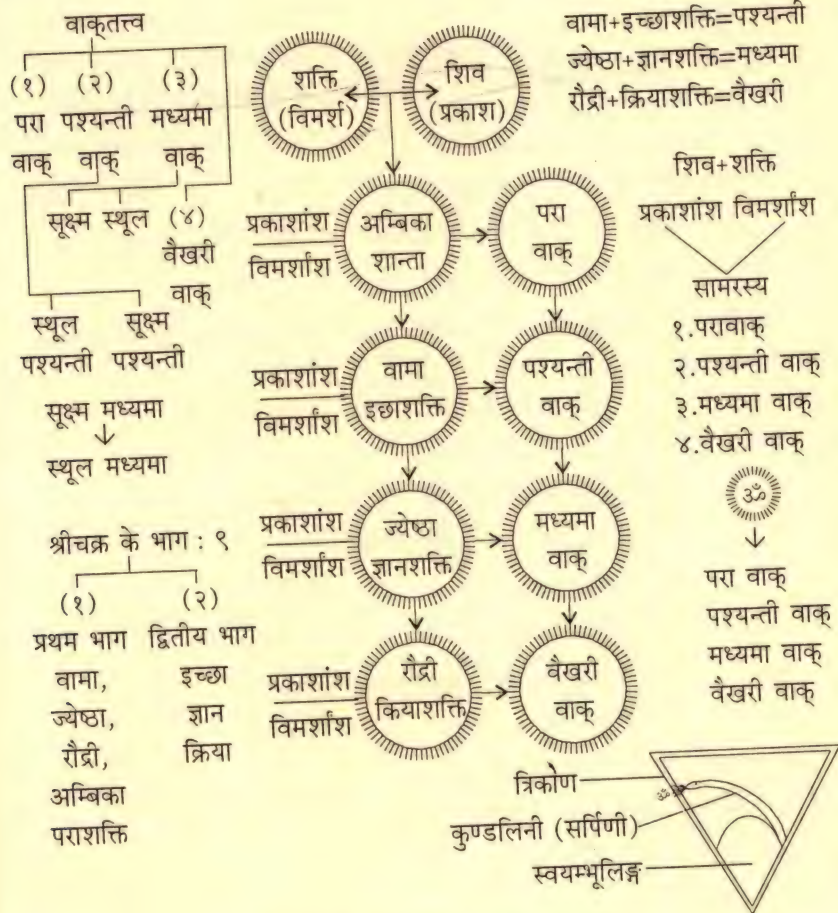 वाक्‌तत्त्व
(१) (२) (३)
परा पश्यन्ती मध्यमा
वाक् वाक् वाक्
सूक्ष्म स्थूल (४)
वैखरी
वाक्
स्थूल सूक्ष्म
पश्यन्ती पश्यन्ती
सूक्ष्म मध्यमा
स्थूल मध्यमा
श्रीचक्र के भाग : ९
(१) (२)
प्रथम भाग द्वितीय भाग
वामा, इच्छा
ज्येष्ठा, ज्ञान
रौद्री, क्रिया
अम्बिका
पराशक्ति
शक्ति
(विमर्श)
शिव
(प्रकाश)
प्रकाशांश
विमर्शांश
अम्बिका
शान्ता
परा
वाक्
प्रकाशांश
विमर्शांश
वामा
इछाशक्ति
पश्यन्ती
वाक्
प्रकाशांश
विमर्शांश
ज्येष्ठा
ज्ञानशक्ति
मध्यमा
वाक्
प्रकाशांश
विमर्शांश
रौद्री
कियाशक्ति
वैखरी
वाक्
वामा+इच्छाशक्ति=पश्यन्ती
ज्येष्ठा+ज्ञानशक्ति=मध्यमा
रौद्री+क्रियाशक्ति=वैखरी
शिव+शक्ति
प्रकाशांश विमर्शांश
सामरस्य
१.परावाक्
२.पश्यन्ती वाक्
३.मध्यमा वाक्
४.वैखरी वाक्
ॐ
परा वाक्
पश्यन्ती वाक्
मध्यमा वाक्
वैखरी वाक्
त्रिकोण
ॐ
कुण्डलिनी (सर्पिणी)
स्वयम्भूलिङ्ग